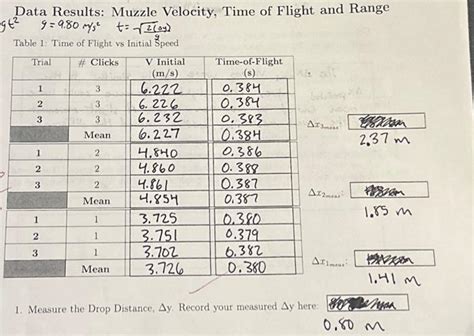 Data Results: Muzzle Velocity, Time of Flight and Range
gt² g = 9.80 m/s² t = √2(Δy)/g
Table 1: Time of Flight vs Initial Speed
Trial # Clicks V Initial (m/s) Time-of-Flight (s)
1 3 6.222 0.384
2 3 6.226 0.384
3 3 6.232 0.383
Mean 6.227 0.384
Δx3meas:
2.37 m
1 2 4.840 0.386
2 2 4.860 0.388
3 2 4.861 0.387
Mean 4.854 0.387
Δx2meas:
1.85 m
1 1 3.725 0.380
2 1 3.751 0.379
3 1 3.702 0.382
Mean 3.726 0.380
Δx1meas:
1.41 m
1. Measure the Drop Distance, Δy. Record your measured Δy here:
0.80 m